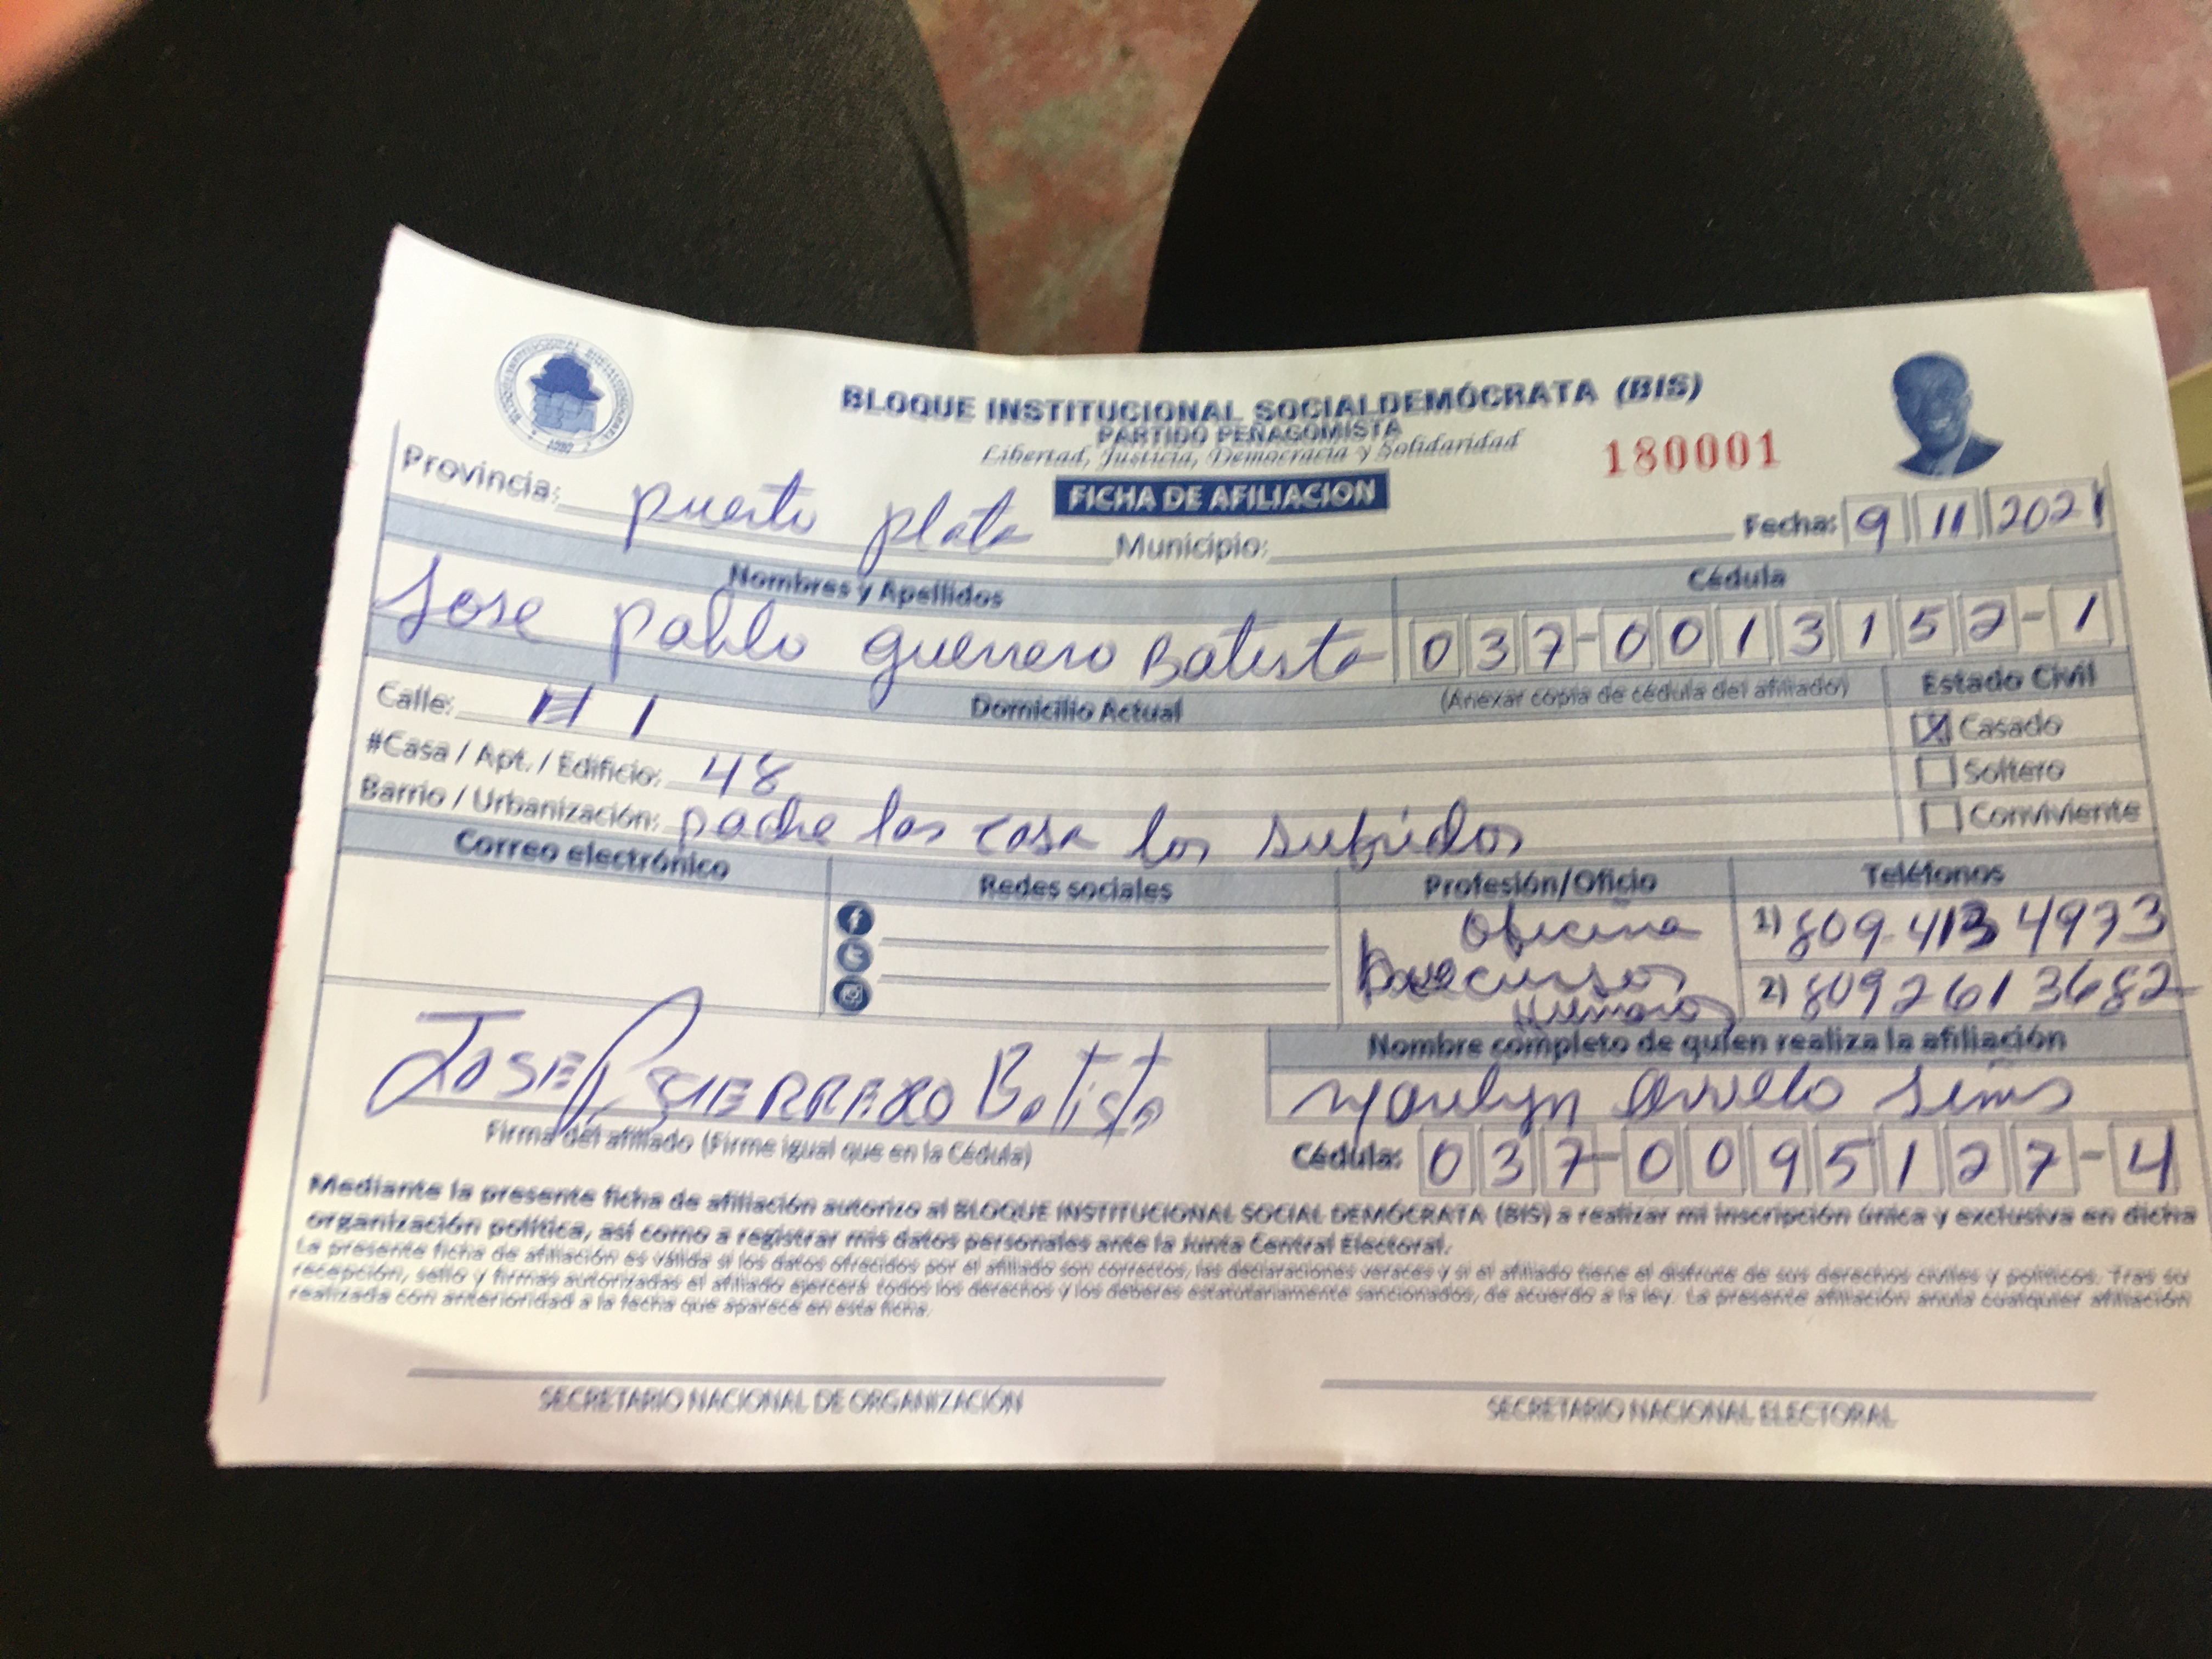 BLOQUE INSTITUCIONAL SOCIALDEMÓCRATA (BIS)
PARTIDO PEÑAGOMISTA
Libertad, Justicia, Democracia y Solidaridad
180001
FICHA DE AFILIACION
Provincia: puerto plata Municipio: Fecha: 9 11 2021
Nombres y Apellidos Cédula
Jose pablo guerrero Batista 037-0013152-1
Domicilio Actual (Anexar copia de cédula del afiliado) Estado Civil
Calle: H 1
X Casado
#Casa / Apt. / Edificio: 48
Soltero
Barrio / Urbanización: padre las casa los subridos
Conviviente
Correo electrónico Redes sociales Profesión/Oficio Teléfonos
Oficina 1) 809-413 4973
Recursos 2) 809 261 3682
Humanos
Nombre completo de quien realiza la afiliación
JOSE P GUERRERO Batista
Firma del afiliado (Firme igual que en la Cédula)
Cédula: 037-0095127-4
Mediante la presente ficha de afiliación autorizo al BLOQUE INSTITUCIONAL SOCIAL DEMÓCRATA (BIS) a realizar mi inscripción única y exclusiva en dicha
organización política, así como a registrar mis datos personales ante la Junta Central Electoral.
La presente ficha de afiliación es válida si los datos ofrecidos por el afiliado son correctos, las declaraciones veraces y si el afiliado tiene el disfrute de sus derechos civiles y políticos. Tras su
recepción, sello y firmas autorizadas el afiliado ejercerá todos los derechos y los deberes estatutariamente sancionados, de acuerdo a la ley. La presente afiliación anula cualquier afiliación
realizada con anterioridad a la fecha que aparece en esta ficha.
SECRETARIO NACIONAL DE ORGANIZACIÓN SECRETARIO NACIONAL ELECTORAL